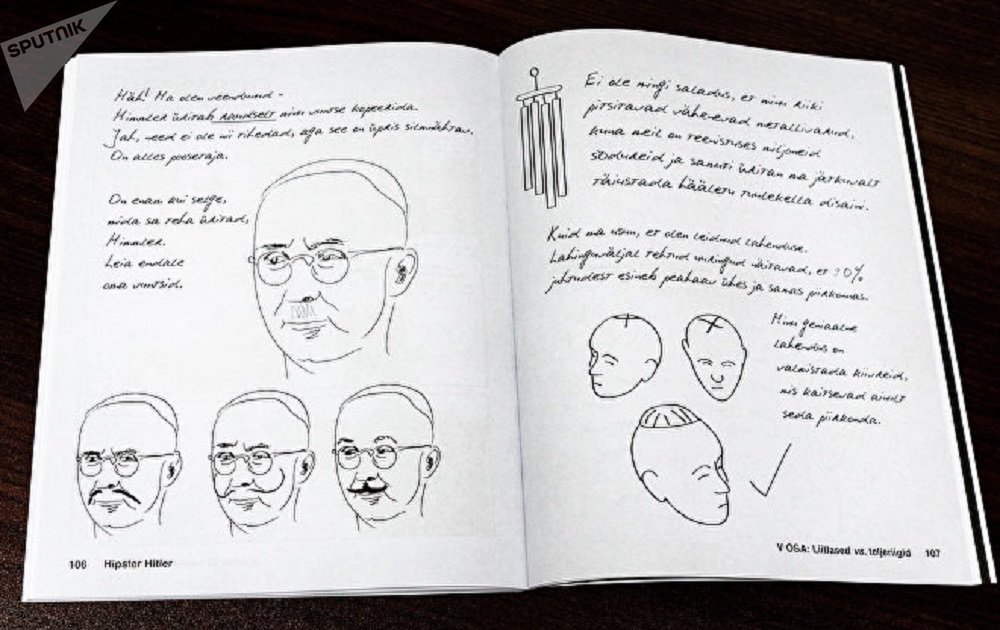 SPUTNIK
Häh! Ma olen veendunud -
Himmler üritab kindlasti minu vuntse kopeerida.
Jah, need ei ole nii tihedad, aga see on üpris silmnähtav.
On alles pooseraja.
On enam kui selge,
mida sa teha üritad,
Himmler.
Leia endale
oma vuntsid.
106 Hipster Hitler
Ei ole mingi saladus, et minu riiki
pitsitavad vähenevad metallivarud,
kuna meil on teenistuses miljoneid
sõdureid ja samuti üritan ma jätkuvalt
täiustada hääletu tuulekella disaini.
Kuid ma usun, et olen leidnud lahenduse.
Lahinguväljal tehtud uuringud näitavad, et 90%
juhtudest esineb peahaav ühes ja samas piirkonnas.
Minu geniaalne
lahendus on
valmistada kiivreid,
mis kaitsevad ainult
seda piirkonda.
V OSA: Liitlased vs. teljeriigid 107